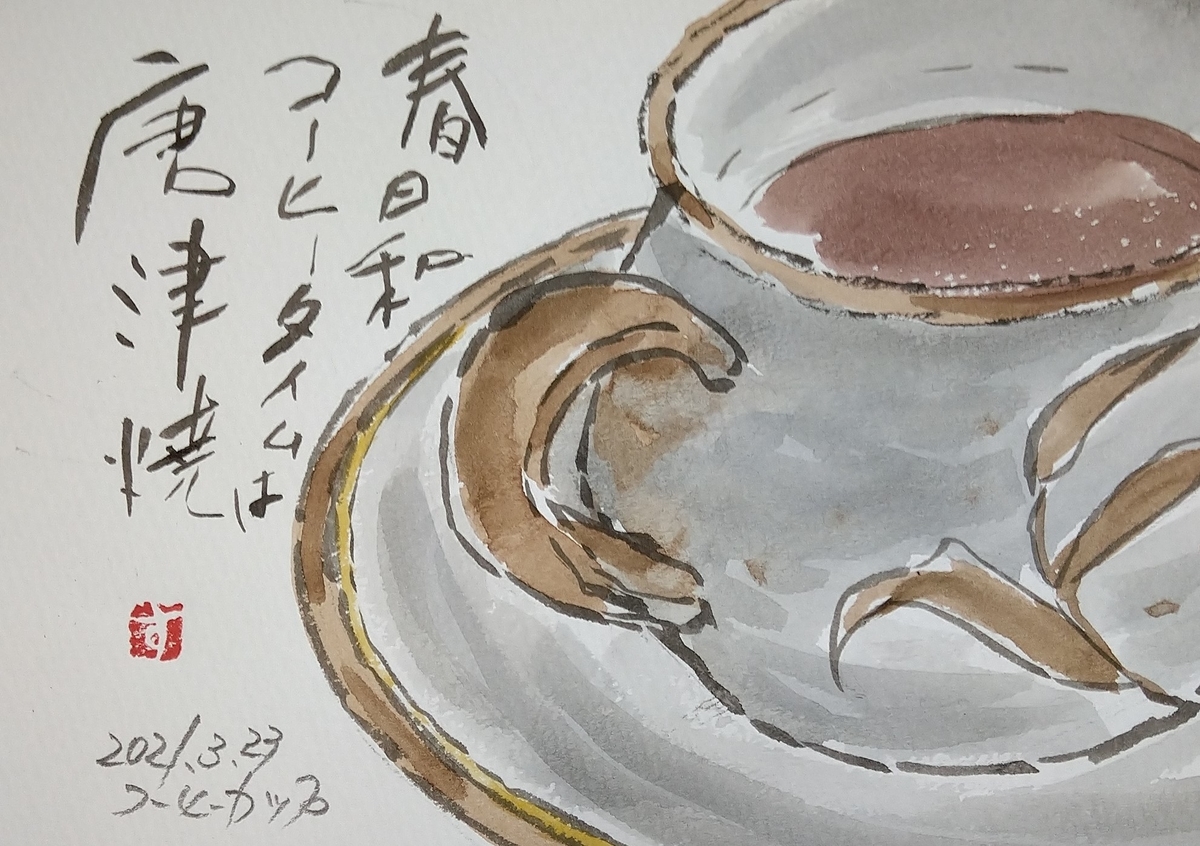 春日和
コーヒータイムは
唐津焼
2021.3.23
コーヒーカップ